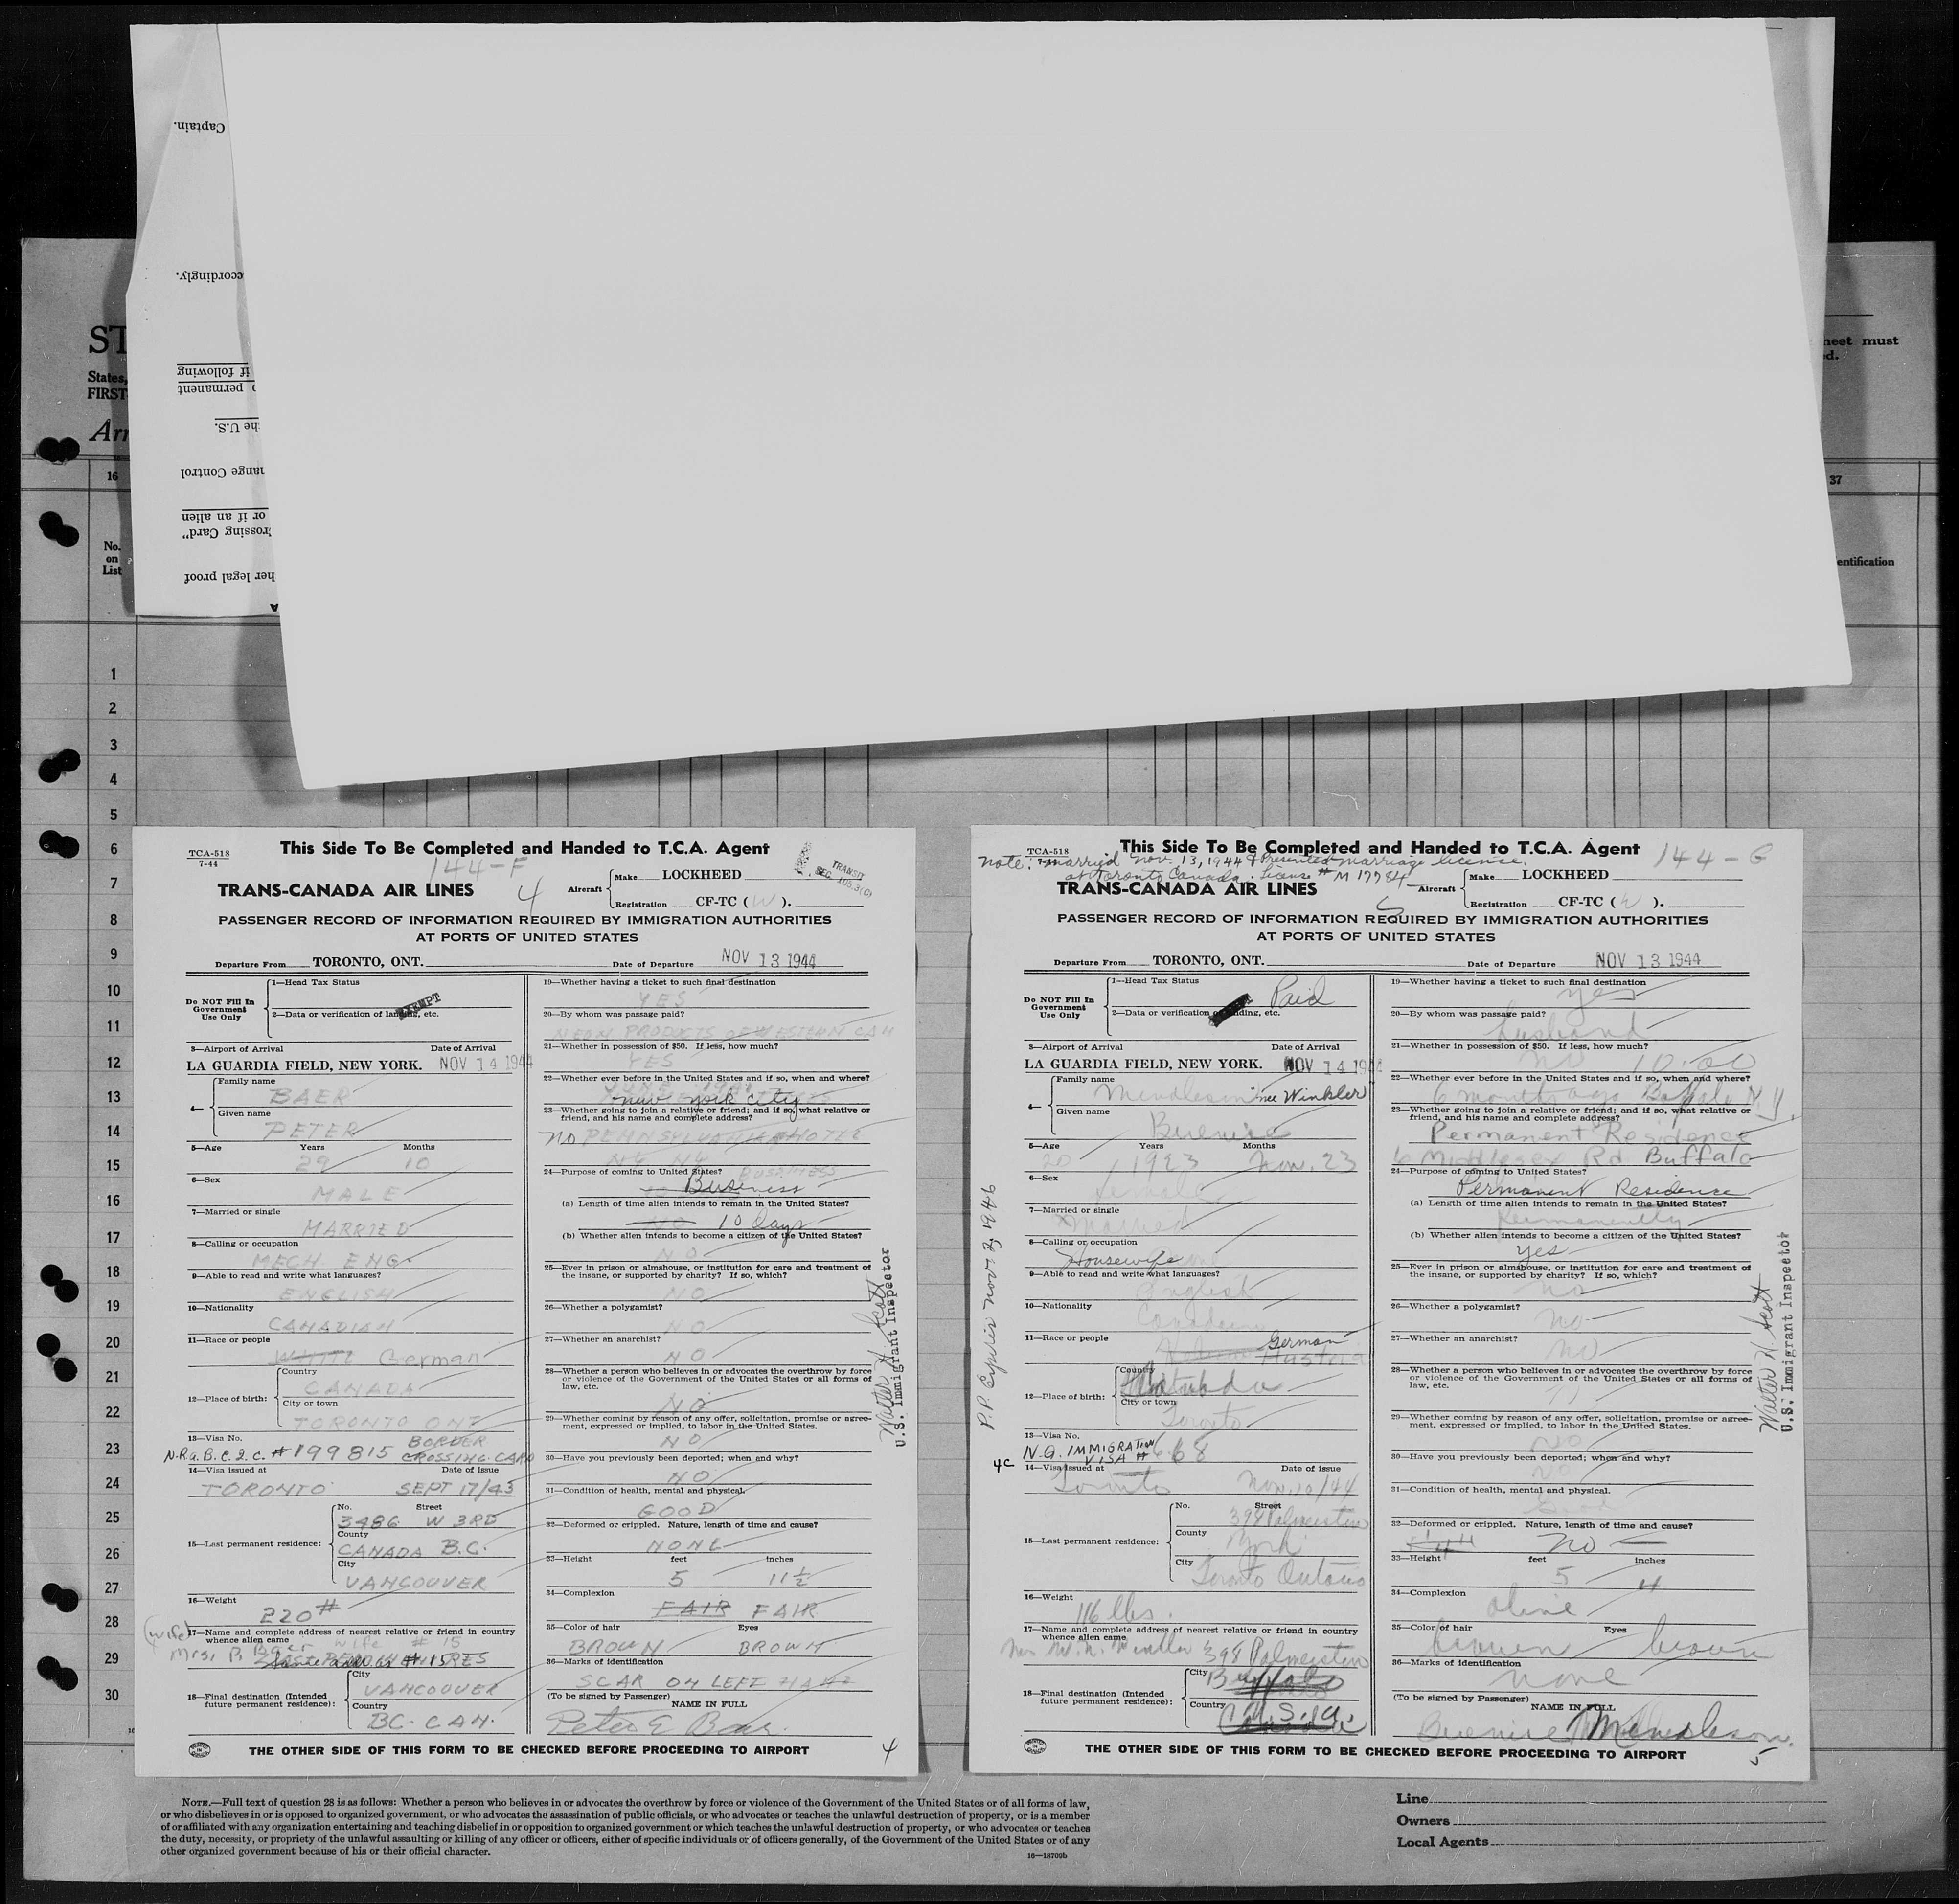 Captain.
ccordingly.
if following
permanent
he U.S.
ange Control
or if an alien
rossing Card"
her legal proof
ST
States,
FIRST
Arr
heet must
d.
16
37
No.
on
List
entification
1
2
3
4
5
6
7
8
9
10
11
12
13
14
15
16
17
18
19
20
21
22
23
24
25
26
27
28
29
30
TCA-518
7-44
This Side To Be Completed and Handed to T.C.A. Agent
144-F
TRANSIT
SEC. 105.3(C)
TRANS-CANADA AIR LINES
4
Aircraft
Make LOCKHEED
Registration CF-TC (W).
PASSENGER RECORD OF INFORMATION REQUIRED BY IMMIGRATION AUTHORITIES
AT PORTS OF UNITED STATES
Departure From TORONTO, ONT.
Date of Departure NOV 13 1944
Do NOT Fill In
Government
Use Only
1—Head Tax Status
EXEMPT
2—Data or verification of landing, etc.
3—Airport of Arrival Date of Arrival
LA GUARDIA FIELD, NEW YORK. NOV 14 1944
4—
Family name
BAER
Given name
PETER
5—Age Years Months
29 10
6—Sex
MALE
7—Married or single
MARRIED
8—Calling or occupation
MECH. ENG.
9—Able to read and write what languages?
ENGLISH
10—Nationality
CANADIAN
11—Race or people
WHITE German
12—Place of birth:
Country
CANADA
City or town
TORONTO ONT
13—Visa No. BORDER
N.R.A.B.C.I.C. #199815 CROSSING CARD
14—Visa issued at Date of issue
TORONTO SEPT 17/43
15—Last permanent residence:
No. Street
3486 W 3RD
County
CANADA B.C.
City
VANCOUVER
16—Weight
220#
17—Name and complete address of nearest relative or friend in country
whence alien came
(wife)
Mrs. P. Baer wife # 15
Same add as # 15
18—Final destination (Intended
future permanent residence):
City
VANCOUVER
Country
BC. CAN.
19—Whether having a ticket to such final destination
YES
20—By whom was passage paid?
NEON PRODUCTS OF WESTERN CAN
21—Whether in possession of $50. If less, how much?
YES
22—Whether ever before in the United States and if so, when and where?
new york city
23—Whether going to join a relative or friend; and if so, what relative or
friend, and his name and complete address?
no PENNSYLVANIA HOTEL
24—Purpose of coming to United States?
BUSINESS
Business
(a) Length of time alien intends to remain in the United States?
10 days
(b) Whether alien intends to become a citizen of the United States?
NO
25—Ever in prison or almshouse, or institution for care and treatment of
the insane, or supported by charity? If so, which?
NO
26—Whether a polygamist?
NO
27—Whether an anarchist?
NO
28—Whether a person who believes in or advocates the overthrow by force
or violence of the Government of the United States or all forms of
law, etc.
NO
29—Whether coming by reason of any offer, solicitation, promise or agree-
ment, expressed or implied, to labor in the United States.
NO
30—Have you previously been deported; when and why?
NO
31—Condition of health, mental and physical.
GOOD
32—Deformed or crippled. Nature, length of time and cause?
NONE
33—Height feet inches
5 11½
34—Complexion
FAIR FAIR
35—Color of hair Eyes
BROWN BROWN
36—Marks of identification
SCAR ON LEFT HAND
(To be signed by Passenger)
NAME IN FULL
Peter E Baer.
THE OTHER SIDE OF THIS FORM TO BE CHECKED BEFORE PROCEEDING TO AIRPORT
4
Walter H Scott
U.S. Immigrant Inspector
TCA-518
7-44
This Side To Be Completed and Handed to T.C.A. Agent
144-G
Note: married Nov. 13, 1944 & Presented marriage license.
at Toronto Canada. License # M 17784
TRANS-CANADA AIR LINES
5
Aircraft
Make LOCKHEED
Registration CF-TC (W).
PASSENGER RECORD OF INFORMATION REQUIRED BY IMMIGRATION AUTHORITIES
AT PORTS OF UNITED STATES
Departure From TORONTO, ONT.
Date of Departure NOV 13 1944
Do NOT Fill In
Government
Use Only
1—Head Tax Status
Paid
2—Data or verification of landing, etc.
3—Airport of Arrival Date of Arrival
LA GUARDIA FIELD, NEW YORK. NOV 14 1944
4—
Family name
Mendleson nee Winkler
Given name
Bernice
5—Age Years Months
20 1923 Nov. 23
6—Sex
female
7—Married or single
Married
8—Calling or occupation
Housewife
9—Able to read and write what languages?
English
10—Nationality
Canadian
11—Race or people
German
Austria
12—Place of birth:
Country
Canada
City or town
Toronto
13—Visa No.
N.Q. IMMIGRATION
VISA # 668
4C
14—Visa issued at Date of issue
Toronto Nov. 10/44
15—Last permanent residence:
No. Street
398 Palmerston
County
York
City
Toronto Ontario
16—Weight
116 lbs.
17—Name and complete address of nearest relative or friend in country
whence alien came
398 Palmerston
18—Final destination (Intended
future permanent residence):
City
Buffalo
Country
U.S.A.
P.P. Expires Nov 7, 1946
19—Whether having a ticket to such final destination
yes
20—By whom was passage paid?
husband
21—Whether in possession of $50. If less, how much?
no 10.00
22—Whether ever before in the United States and if so, when and where?
6 months ago Buffalo N.Y.
23—Whether going to join a relative or friend; and if so, what relative or
friend, and his name and complete address?
Permanent Residence
6 Middlesex Rd. Buffalo
24—Purpose of coming to United States?
Permanent Residence
(a) Length of time alien intends to remain in the United States?
permanently
(b) Whether alien intends to become a citizen of the United States?
yes
25—Ever in prison or almshouse, or institution for care and treatment of
the insane, or supported by charity? If so, which?
no
26—Whether a polygamist?
no
27—Whether an anarchist?
no
28—Whether a person who believes in or advocates the overthrow by force
or violence of the Government of the United States or all forms of
law, etc.
29—Whether coming by reason of any offer, solicitation, promise or agree-
ment, expressed or implied, to labor in the United States.
no
30—Have you previously been deported; when and why?
no
31—Condition of health, mental and physical.
Good
32—Deformed or crippled. Nature, length of time and cause?
no
33—Height feet inches
5 4
34—Complexion
olive
35—Color of hair Eyes
brown brown
36—Marks of identification
none
(To be signed by Passenger)
NAME IN FULL
Bernice Mendleson.
THE OTHER SIDE OF THIS FORM TO BE CHECKED BEFORE PROCEEDING TO AIRPORT
5
Walter H Scott
U.S. Immigrant Inspector
NOTE.—Full text of question 28 is as follows: Whether a person who believes in or advocates the overthrow by force or violence of the Government of the United States or of all forms of law,
or who disbelieves in or is opposed to organized government, or who advocates the assassination of public officials, or who advocates or teaches the unlawful destruction of property, or is a member
of or affiliated with any organization entertaining and teaching disbelief in or opposition to organized government or which teaches the unlawful destruction of property, or who advocates or teaches
the duty, necessity, or propriety of the unlawful assaulting or killing of any officer or officers, either of specific individuals or of officers generally, of the Government of the United States or of any
other organized government because of his or their official character.
16—18709b
Line
Owners
Local Agents